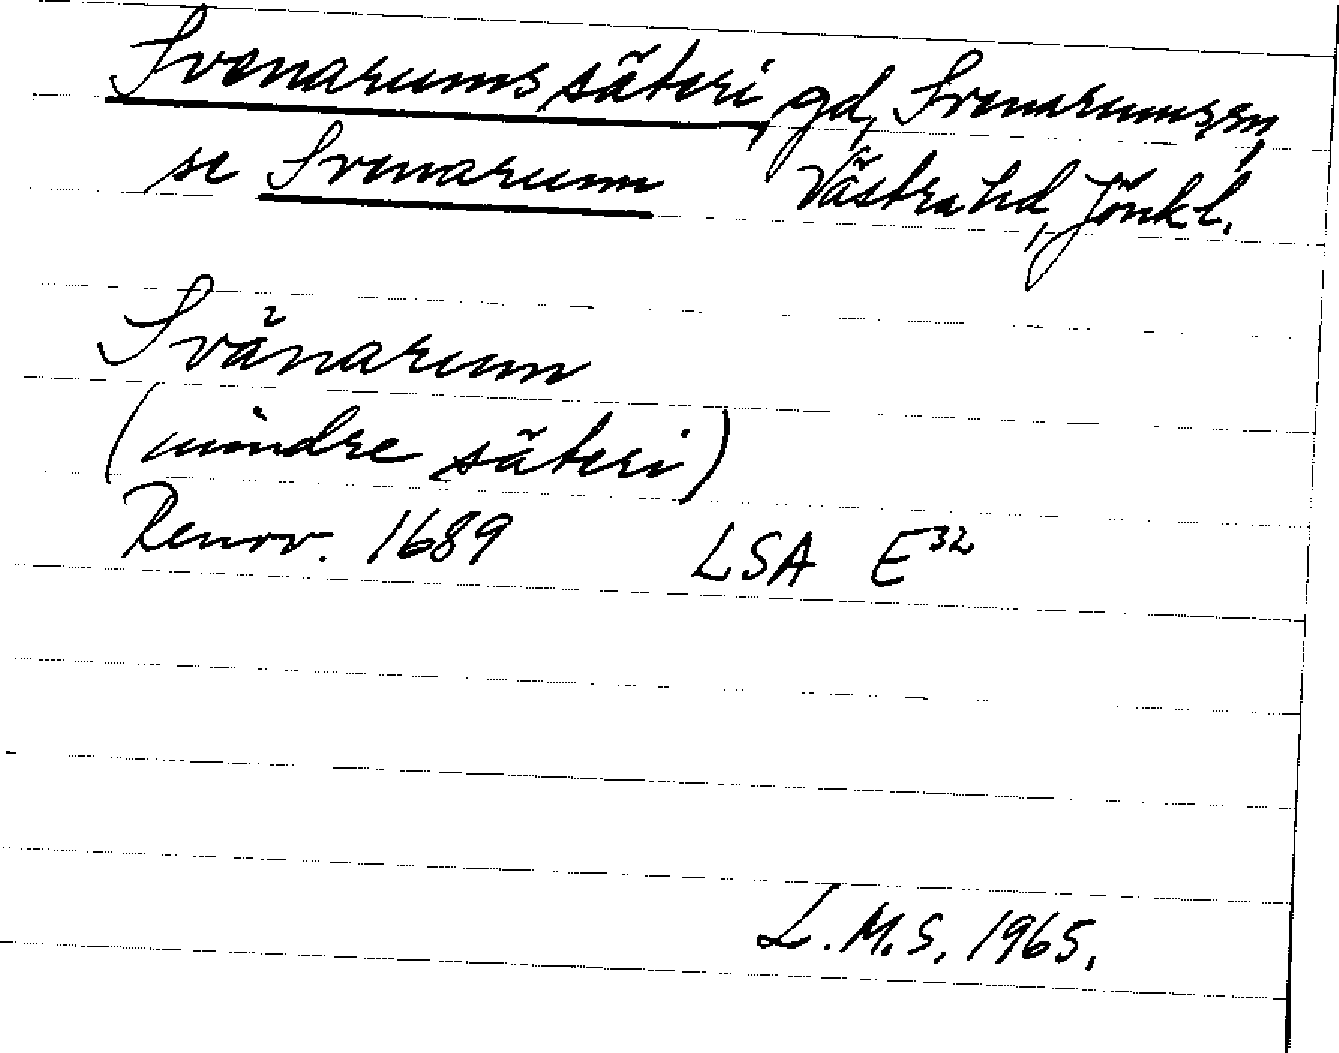 Svenarums säteri, gd, Svenarums sn,
se Svenarum Västra hd, Jönk l.
Svänarum
(mindre säteri)
Renov. 1689 LSA E³²
L.M.S. 1965.